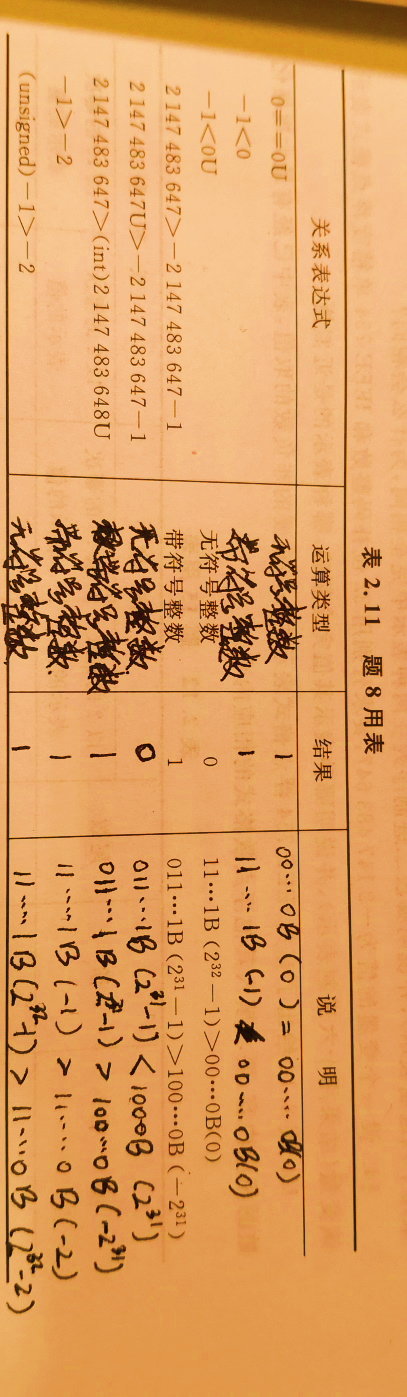 表 2.11 题 8 用表
关系表达式 运算类型 结果 说 明
0==0U 无符号整数 1 00…0B(0)=00…0B(0)
-1<0 带符号整数 1 11…1B(-1)<00…0B(0)
-1<0U 无符号整数 0 11…1B(2³²-1)>00…0B(0)
2 147 483 647>-2 147 483 647-1 带符号整数 1 011…1B(2³¹-1)>100…0B(-2³¹)
2 147 483 647U>-2 147 483 647-1 无符号整数 0 011…1B(2³¹-1)<100…0B(2³¹)
2 147 483 647>(int)2 147 483 648U 带符号整数 1 011…1B(2³¹-1)>100…0B(-2³¹)
-1>-2 带符号整数 1 11…1B(-1)>11…0B(-2)
(unsigned)-1>-2 无符号整数 1 11…1B(2³²-1)>11…0B(2³²-2)